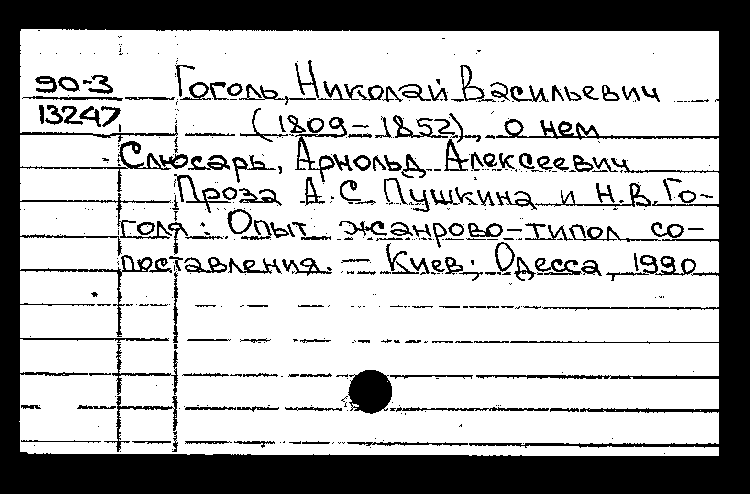 90-3 Гоголь, Николай Васильевич
13247 (1809-1852), о нем
Слюсарь, Арнольд Алексеевич
Проза А.С. Пушкина и Н.В. Го-
голя: Опыт жанрово-типол. со-
поставления. — Киев; Одесса, 1990